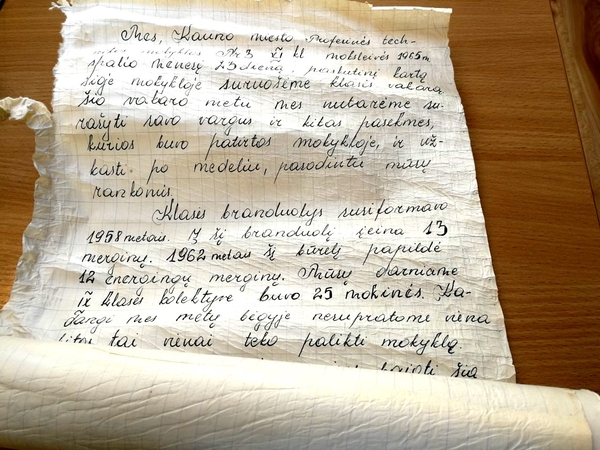 Mes, Kauno miesto Profesinės tech-
nikos mokyklos Nr 3 XI kl moksleivės 1965 m.
spalio mėnesį 23 dieną, paskutinį kartą
šioje mokykloje suruošėme klasės vakarą.
Šio vakaro metu mes nutarėme su-
rašyti savo vargus ir kitas pasekmes,
kurios buvo patirtos mokykloje, ir už-
kasti po medeliu, pasodintu mūsų
rankomis.
Klasės branduolys susiformavo
1958 metais. Į šį branduolį įeina 13
merginų. 1962 metais šį būrelį papildė
12 energingų merginų. Mūsų darniame
IX klasės kolektyve buvo 25 mokinės. Ka-
dangi mes metų bėgyje nesupratome viena
kitos tai vienai teko palikti mokyklą
šią